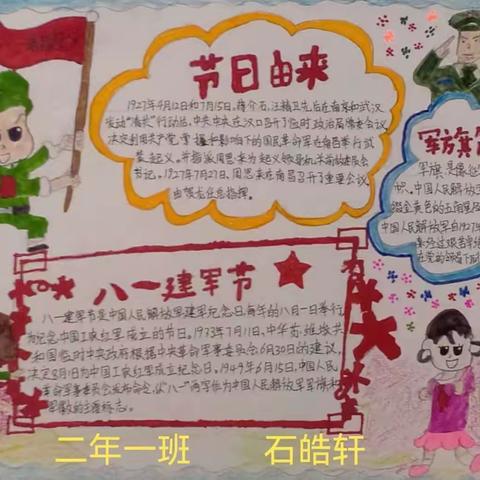 节日由来
1927年4月12日和7月15日,蒋介石,汪精卫先后在南京和武汉
发动"清共"行动后,中共中央在汉口召开了临时政治局常委会议
决定利用共产党掌握和影响下的国民革命军在南昌举行武
装起义。并指派周恩来为起义领导机关前敌委员会
书记。1927年7月27日,周恩来在南昌召开了重要会议
由贺龙任总指挥。
军旗
军旗是
织。中国人民解放
缀金黄色的五角星及
中国人民解放军自1927年
在党的领导下
八一建军节
八一建军节是中国人民解放军建军纪念日,每年的八月一日举行
为纪念中国工农红军成立的节日。1933年7月11日,中华苏维埃共
和国临时中央政府根据中央革命军事委员会6月30日的建议,
决定8月1日为中国工农红军成立纪念日。1949年6月15日,中国人民
革命军事委员会发布命令,以"八一"两字作为中国人民解放军军旗和
军徽的主要标志。
二年一班 石皓轩